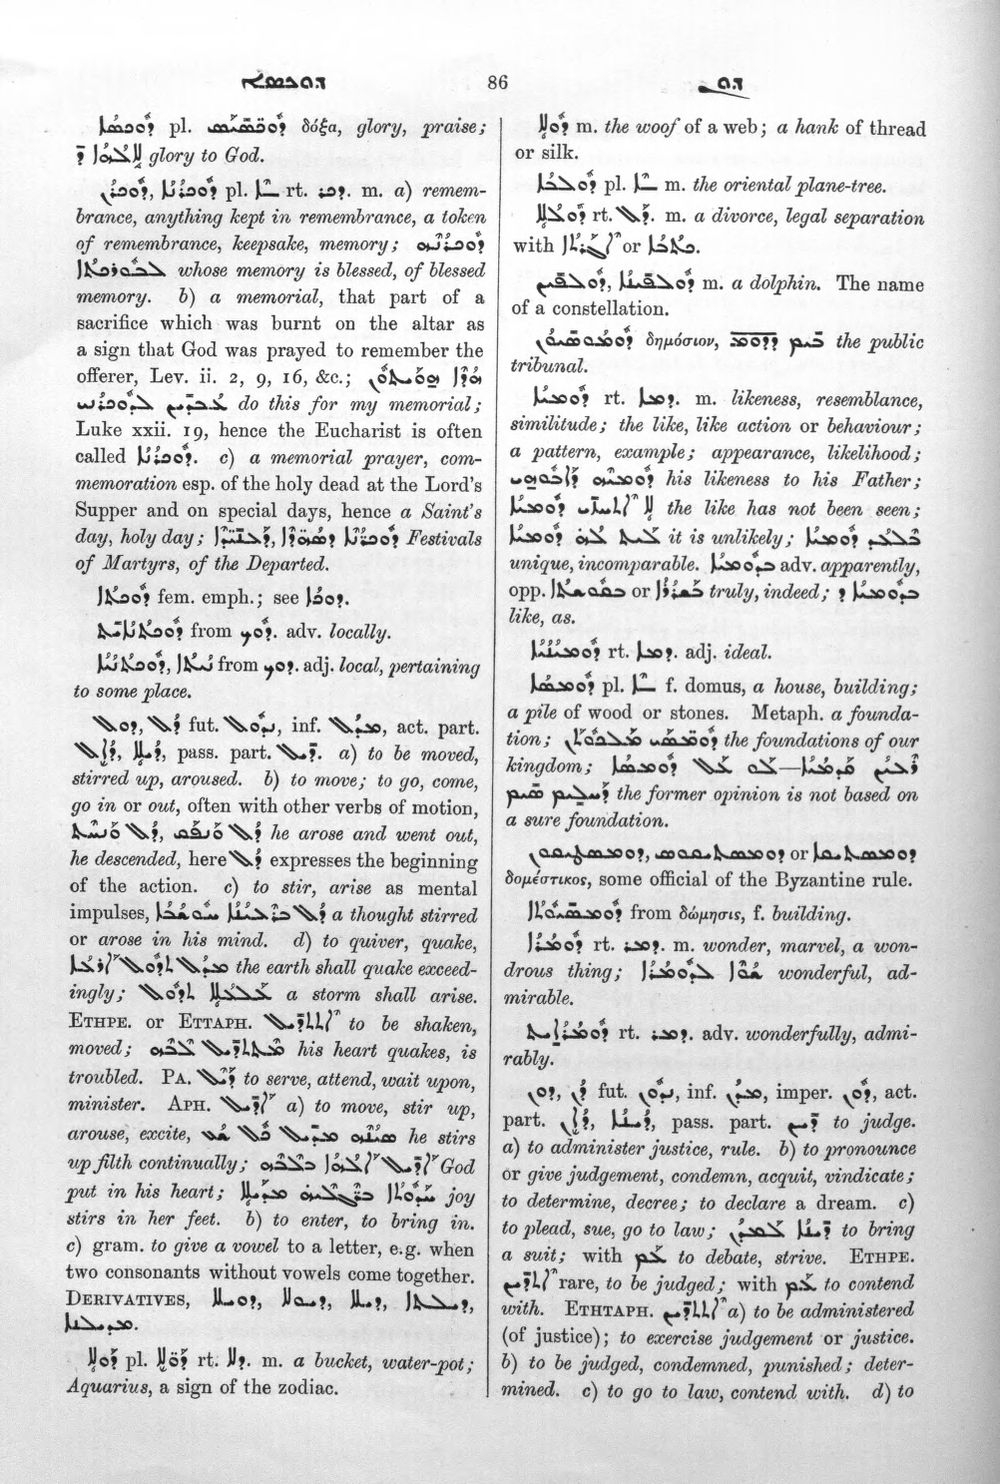 ܕܘܟܣܣܐ 86 ܕܘ
ܕܘܟܣܐ pl. ܕܘܟܣܣ δόξα, glory, praise;
ܕ ܠܐܠܗܐ glory to God.
ܕܘܟܪܢ, ܕܘܟܪܢܐ pl. ܢܐ rt. ܕܟܪ. m. a) remem-
brance, anything kept in remembrance, a token
of remembrance, keepsake, memory; ܕܘܟܪܢܗ
ܠܒܘܪܟܬܐ whose memory is blessed, of blessed
memory. b) a memorial, that part of a
sacrifice which was burnt on the altar as
a sign that God was prayed to remember the
offerer, Lev. ii. 2, 9, 16, &c.; ܗܕܐ ܗܘܝܬܘܢ
ܥܒܕܝܢ ܠܕܘܟܪܢܝ do this for my memorial;
Luke xxii. 19, hence the Eucharist is often
called ܕܘܟܪܢܐ. c) a memorial prayer, com-
memoration esp. of the holy dead at the Lord's
Supper and on special days, hence a Saint's
day, holy day; ܕܘܟܪܢܐ ܕܣܗܕܐ, ܕܥܢܝܕܐ Festivals
of Martyrs, of the Departed.
ܕܘܟܬܐ fem. emph.; see ܕܘܟܐ.
ܕܘܟܬܢܐܝܬ from ܕܘܟ. adv. locally.
ܕܘܟܬܢܝܐ, ܢܝܬܐ from ܕܘܟ. adj. local, pertaining
to some place.
ܕܘܠ, ܕܠ fut. ܢܕܘܠ, inf. ܡܕܠ, act. part.
ܕܐܠ, ܕܝܠܐ, pass. part. ܕܝܠ. a) to be moved,
stirred up, aroused. b) to move; to go, come,
go in or out, often with other verbs of motion,
ܕܠ ܘܢܦܩ, ܕܠ ܘܢܚܬ he arose and went out,
he descended, here ܕܠ expresses the beginning
of the action. c) to stir, arise as mental
impulses, ܕܠ ܒܪܥܝܢܐ ܚܘܫܒܐ a thought stirred
or arose in his mind. d) to quiver, quake,
ܡܕܠ ܬܕܘܠ ܐܪܥܐ the earth shall quake exceed-
ingly; ܬܕܘܠ ܥܠܥܠܐ a storm shall arise.
Ethpe. or Ettaph. ܐܬܬܕܝܠ to be shaken,
moved; ܡܬܬܕܝܠ ܠܒܗ his heart quakes, is
troubled. Pa. ܕܝܠ to serve, attend, wait upon,
minister. Aph. ܐܕܝܠ a) to move, stir up,
arouse, excite, he stirs
up filth continually; ܐܕܝܠ ܐܠܗܐ ܒܠܒܗ God
put in his heart; ܚܕܘܬܐ ܒܪܓܠܝܗ ܡܕܝܠܐ joy
stirs in her feet. b) to enter, to bring in.
c) gram. to give a vowel to a letter, e.g. when
two consonants without vowels come together.
Derivatives,
ܕܘܠܐ pl. ܕܘܠܐ rt. ܕܠܐ. m. a bucket, water-pot;
Aquarius, a sign of the zodiac.
ܕܘܠܐ m. the woof of a web; a hank of thread
or silk.
ܕܘܠܒܐ pl. ܒܐ m. the oriental plane-tree.
ܕܘܠܠܐ rt. ܕܠ. m. a divorce, legal separation
with ܐܓܪܬܐ or ܟܬܒܐ.
ܕܘܠܦܝܢ, ܕܘܠܦܝܢܐ m. a dolphin. The name
of a constellation.
ܕܘܡܘܣܝܘܢ δημόσιον, ܒܝܡ the public
tribunal.
ܕܘܡܝܐ rt. ܕܡܐ. m. likeness, resemblance,
similitude; the like, like action or behaviour;
a pattern, example; appearance, likelihood;
ܕܘܡܝܗ ܕܐܒܘܗܝ his likeness to his Father;
ܠܐ ܐܬܚܙܝ ܕܘܡܝܐ the like has not been seen;
ܠܝܬ ܠܗ ܕܘܡܝܐ it is unlikely; ܕܠܝܬ ܕܘܡܝܐ
unique, incomparable. ܒܕܘܡܝܐ adv. apparently,
opp. ܒܩܘܫܬܐ or ܒܫܪܪܐ truly, indeed; ܒܕܘܡܝܐ ܕ
like, as.
ܕܘܡܝܢܝܐ rt. ܕܡܐ. adj. ideal.
ܕܘܡܣܐ pl. ܣܐ f. domus, a house, building;
a pile of wood or stones. Metaph. a founda-
tion; the foundations of our
kingdom;
the former opinion is not based on
a sure foundation.
ܕܘܡܣܛܝܩܘܣ or ܕܘܡܣܛܝܩܐ
δομέστικος, some official of the Byzantine rule.
from δώμησις, f. building.
ܕܘܡܪܐ rt. ܕܡܪ. m. wonder, marvel, a won-
drous thing; ܫܘܐ ܠܕܘܡܪܐ wonderful, ad-
mirable.
ܕܘܡܪܐܝܬ rt. ܕܡܪ. adv. wonderfully, admi-
rably.
ܕܘܢ, ܕܢ fut. ܢܕܘܢ, inf. ܡܕܢ, imper. ܕܘܢ, act.
part. ܕܐܢ, ܕܝܢܐ, pass. part. ܕܝܢ to judge.
a) to administer justice, rule. b) to pronounce
or give judgement, condemn, acquit, vindicate;
to determine, decree; to declare a dream. c)
to plead, sue, go to law; ܕܝܢܐ ܠܡܕܢ to bring
a suit; with ܥܡ to debate, strive. Ethpe.
ܐܬܕܝܢ rare, to be judged; with ܥܡ to contend
with. Ethtaph. ܐܬܬܕܝܢ a) to be administered
(of justice); to exercise judgement or justice.
b) to be judged, condemned, punished; deter-
mined. c) to go to law, contend with. d) to